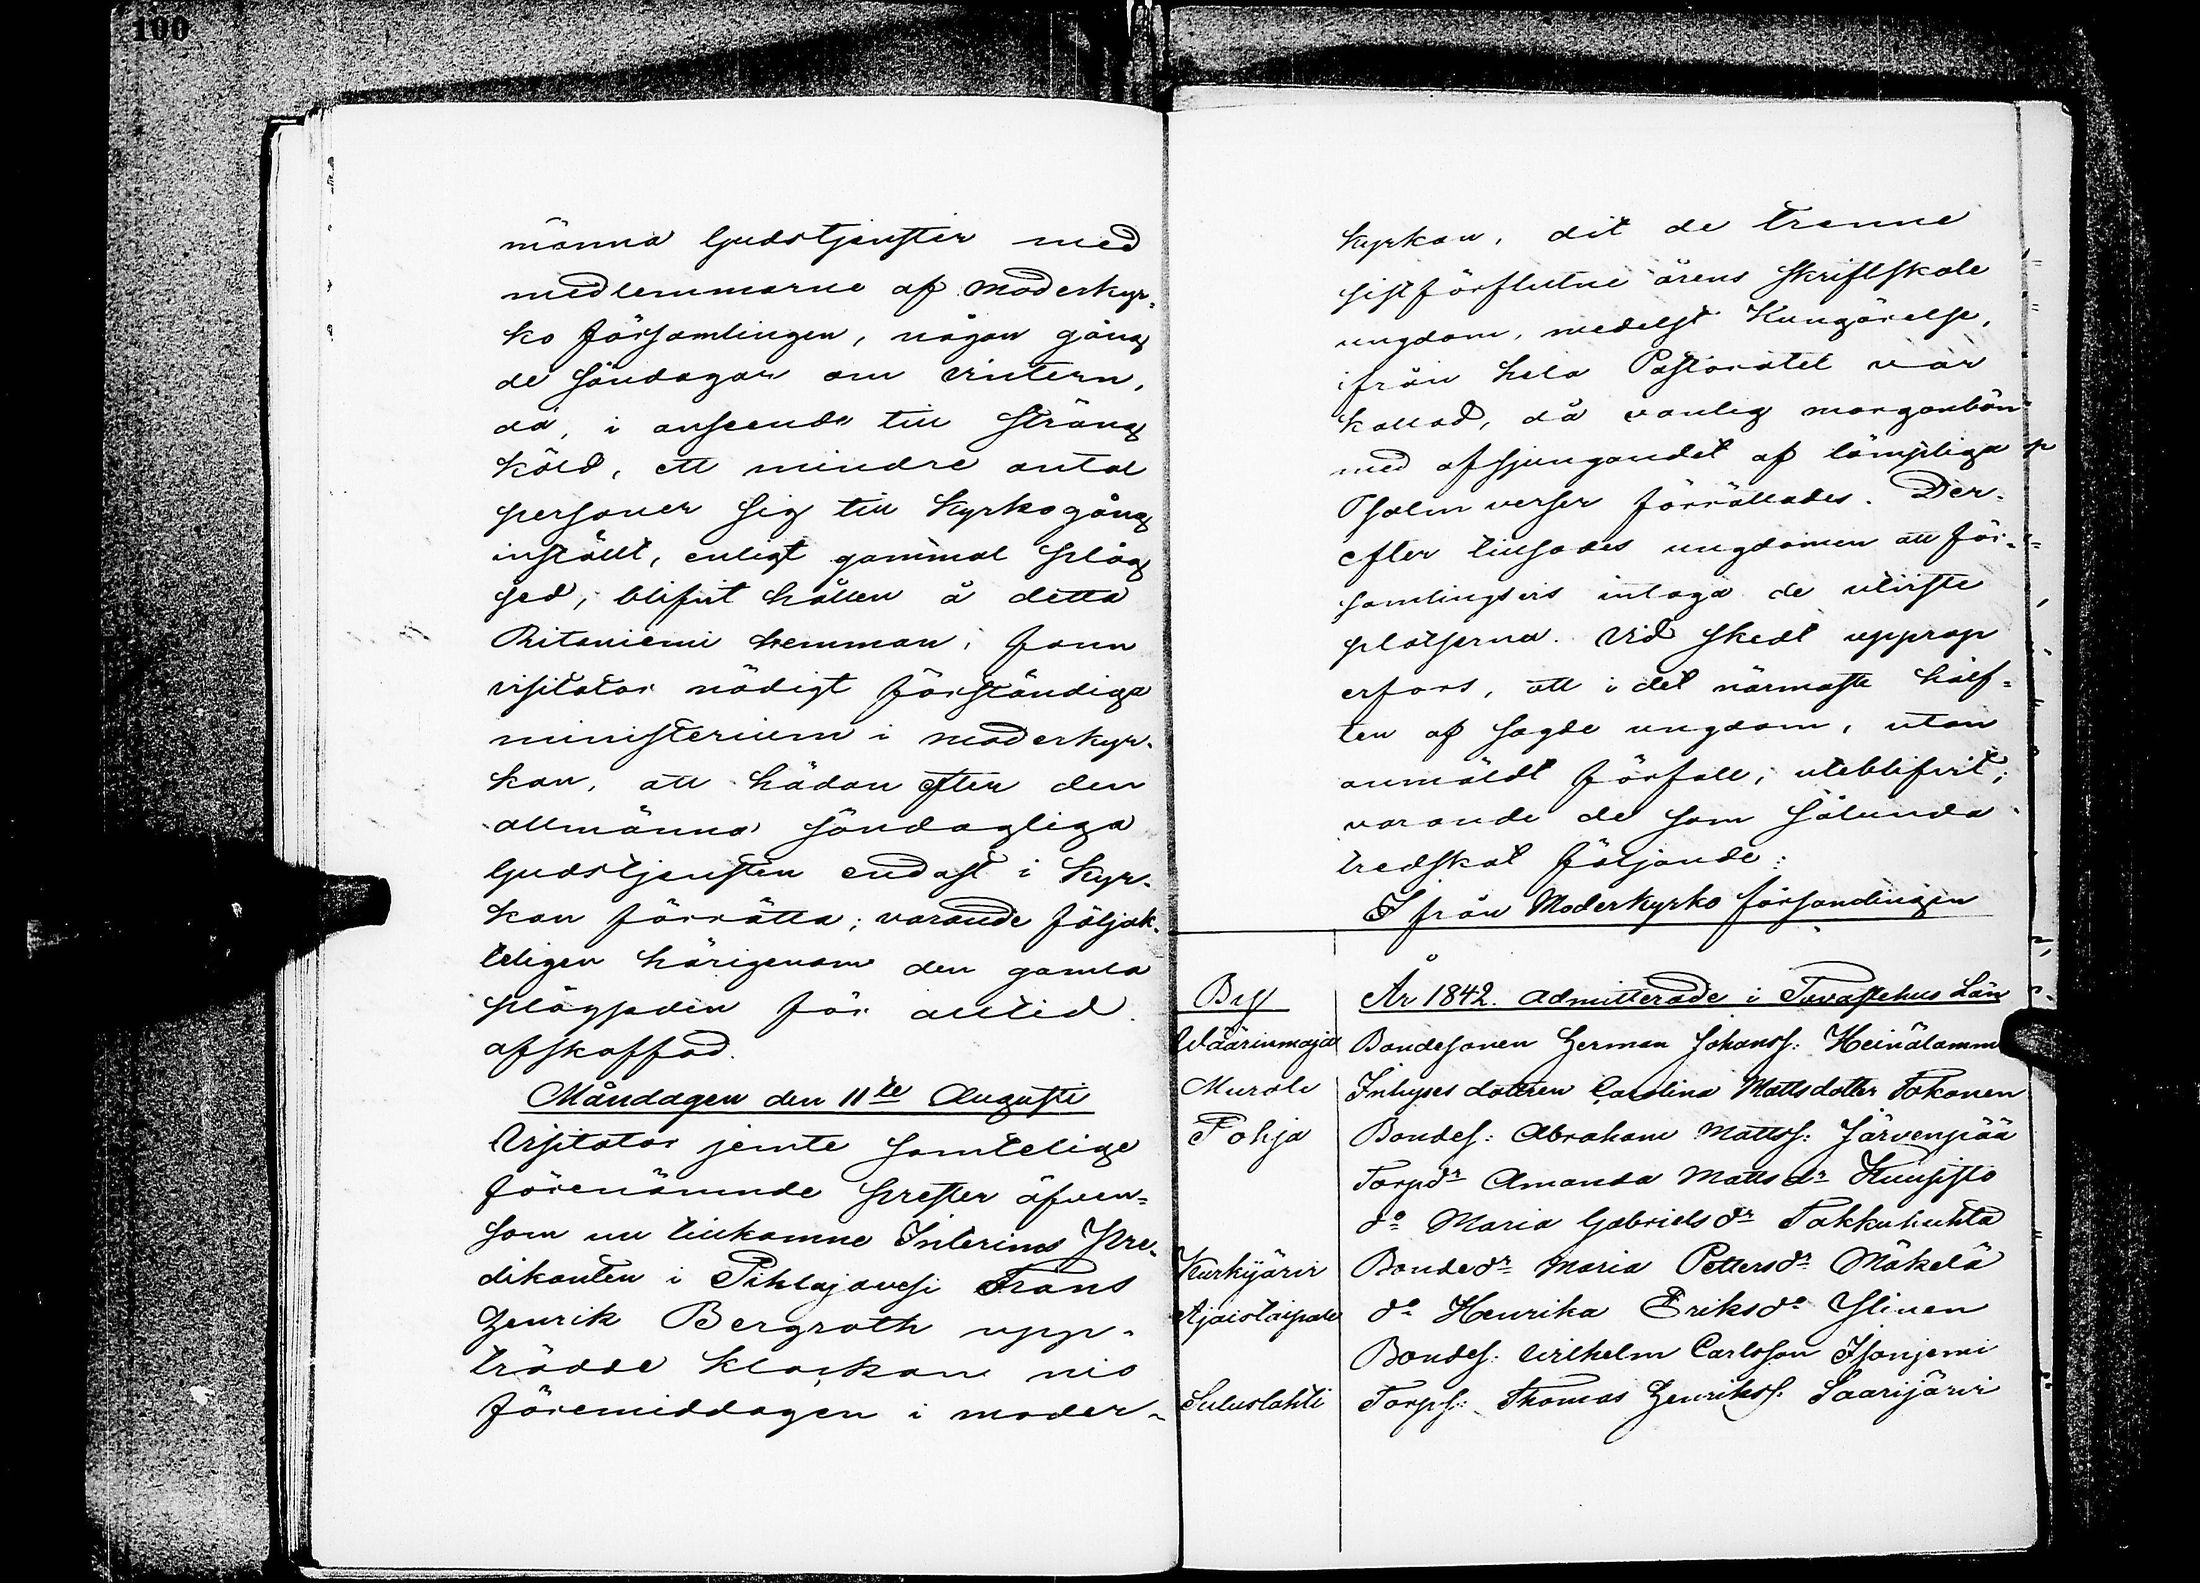 100
männa Gudstjenster med
medlemmarne af moderkyr-
ko församlingen, någon gång
de söndagar om vintern,
då, i anseende till sträng
köld, ett mindre antal
personer sig till kyrkogång
inställt, enligt gammal plåg
sed, blifvit hållen å detta
Ritoniemi hemman; fann
visitator nödigt förständiga
ministerium i moderkyr-
kan, att hädan efter den
allmänna söndagliga
Gudstjensten endast i kyr-
kan förrätta; varande följak-
teligen härigenom den gamla
plägseden för alltid
afskaffad.
Måndagen den 11te Augusti
Visitator jemte samtelige
förenämnde prester äfven-
som nu tillkomne Interims Pre-
dikanten i Pihlajavesi Frans
Henrik Bergroth upp-
trädde klockan nio
föremiddagen i moder-
kyrkan, dit de trenne
sistförflutne årens skriftskole
ungdom, medelst Kungörelse,
ifrån hela Pastoratet var
kallad, då vanlig morgonbön
med afsjungandet af lämpliga
Psalm verser förrättades. Der-
efter tillsades ungdomen att för-
samlingsvis intaga de utviste
platserna. Vid skedt upprop
erfors, att i det närmaste hälf-
ten af sagde ungdom, utan
anmäldt förfall, uteblifvit;
varande de som sålunda
tredskat följande:
Ifrån Moderkyrko församlingen
By År 1842. admitterade i Tavastehus Län
Wäärinmaja Bondesonen Herman Johanss: Heinälamm
Murole Inhyses dottren Carolina Mattsdotter Tokonen
Pohja Bondes: Abraham Mattss: Järvenpää
Torpdr Amanda Mattsdr Kuusisto
do Maria Gabrielsdr Takkuhuhta
Kurkijärvi Bondedr Maria Pettersdr Mäkelä
Ajaistaipale do Henrika Eriksdr Ylinen
Bondes: Wilhelm Carlsson Isoniemi
Suluslahti Torps: Thomas Henrikss. Saarijärvi